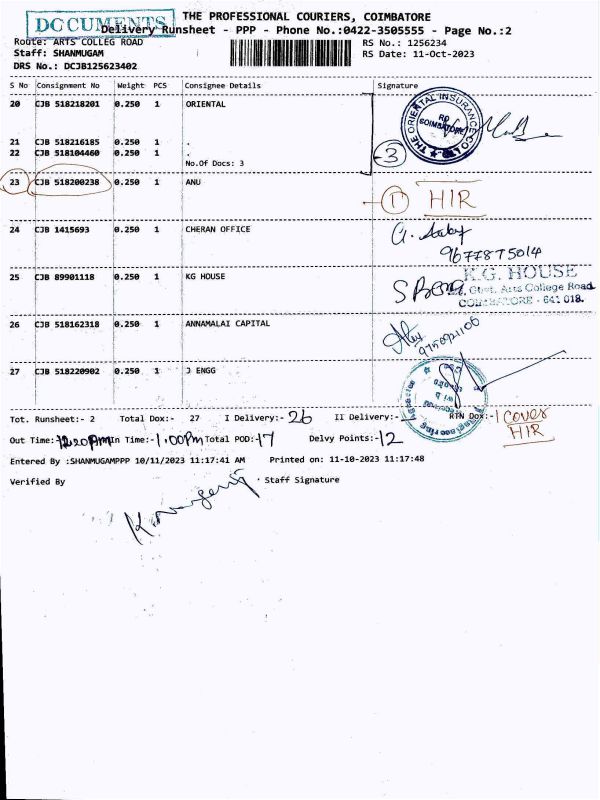 DOCUMENTS
THE PROFESSIONAL COURIERS, COIMBATORE
Delivery Runsheet - PPP - Phone No.:0422-3505555 - Page No.:2
Route: ARTS COLLEG ROAD
RS No.: 1256234
Staff: SHANMUGAM
RS Date: 11-Oct-2023
DRS No.: DCJB125623402
S No Consignment No Weight PCS Consignee Details Signature
20 CJB 518218201 0.250 1 ORIENTAL
THE ORIENTAL INSURANCE CO LTD
COIMBATORE
21 CJB 518216185 0.250 1 .
22 CJB 518104460 0.250 1 .
3
No.Of Docs: 3
23 CJB 518200238 0.250 1 ANU
1 HIR
24 CJB 1415693 0.250 1 CHERAN OFFICE
9677875014
25 CJB 89901118 0.250 1 KG HOUSE
K.G. HOUSE
Govt. Arts College Road
COIMBATORE - 641 018.
26 CJB 518162318 0.250 1 ANNAMALAI CAPITAL
27 CJB 518220902 0.250 1 J ENGG
Tot. Runsheet:- 2 Total Dox:- 27 I Delivery:- 26 II Delivery:- RTN Dox:- 1 cover
HIR
Out Time:- 12.20PM In Time:- 1.00Pm Total POD:- 17 Delvy Points:- 12
Entered By :SHANMUGAMPPP 10/11/2023 11:17:41 AM Printed on: 11-10-2023 11:17:48
Verified By Staff Signature